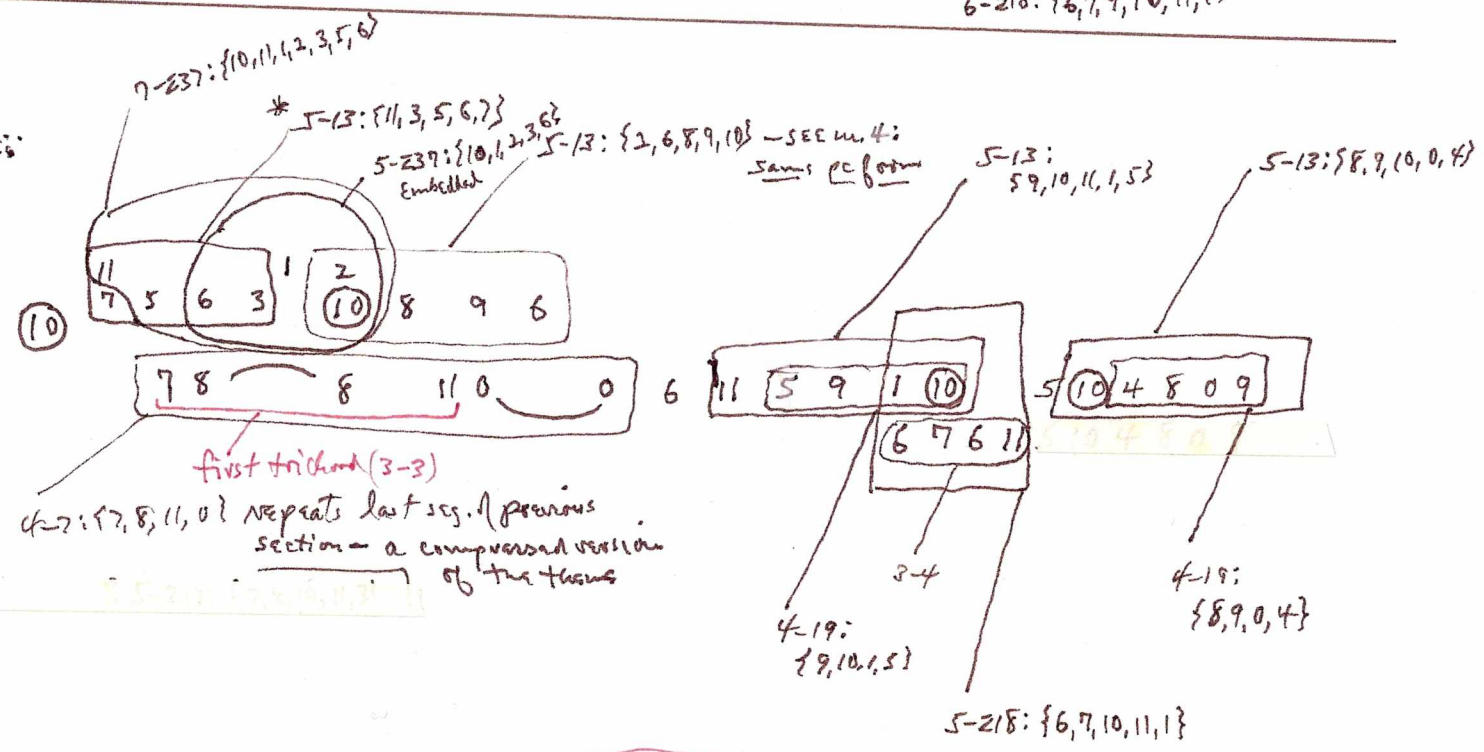 6-Z10: {6,7,9,10,11,
7-Z37: {10,11,1,2,3,5,6}
* 5-13: {11,3,5,6,7}
5-Z37: {10,1,2,3,6}
Embedded
5-13: {2,6,8,9,10} - SEE m. 4:
same pc form
5-13:
{9,10,11,1,5}
5-13: {8,9,10,0,4}
11 1 2
10 7 5 6 3 10 8 9 6
7 8 8 11 0 0 6 11 5 9 1 10 5 10 4 8 0 9
6 7 6 11
first trichord (3-3)
4-7: {7,8,11,0} repeats last seg. of previous
section - a compressed version
of the theme
3-4
4-19:
{9,10,1,5}
4-19:
{8,9,0,4}
5-Z18: {6,7,10,11,1}